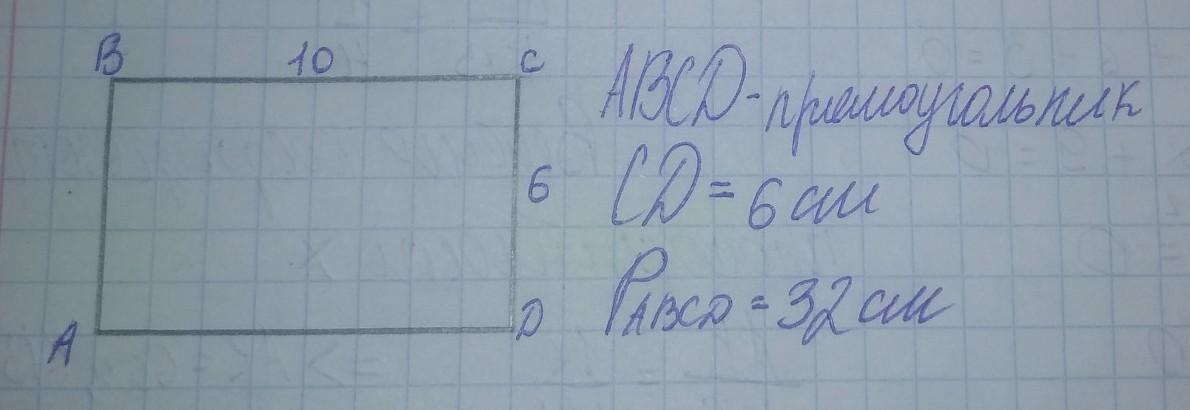 B 10 C
ABCD - прямоугольник
6
CD = 6 см
A D
PABCD = 32 см